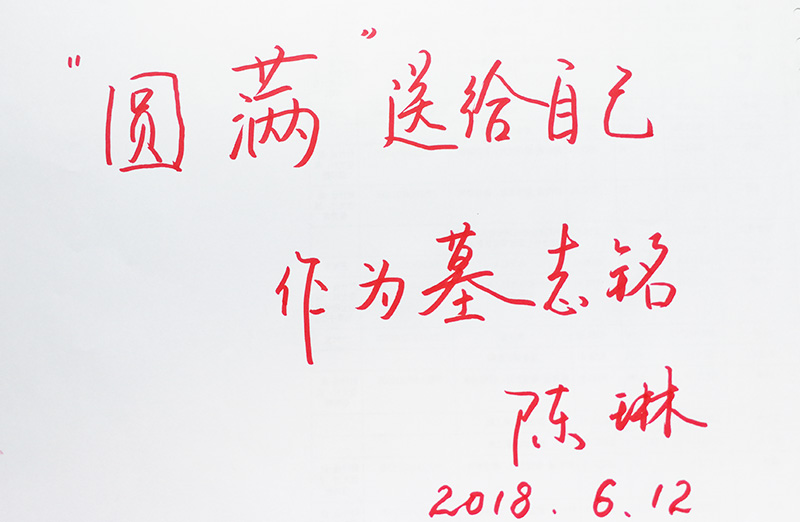 “圆满”送给自己
作为墓志铭
陈琳
2018.6.12